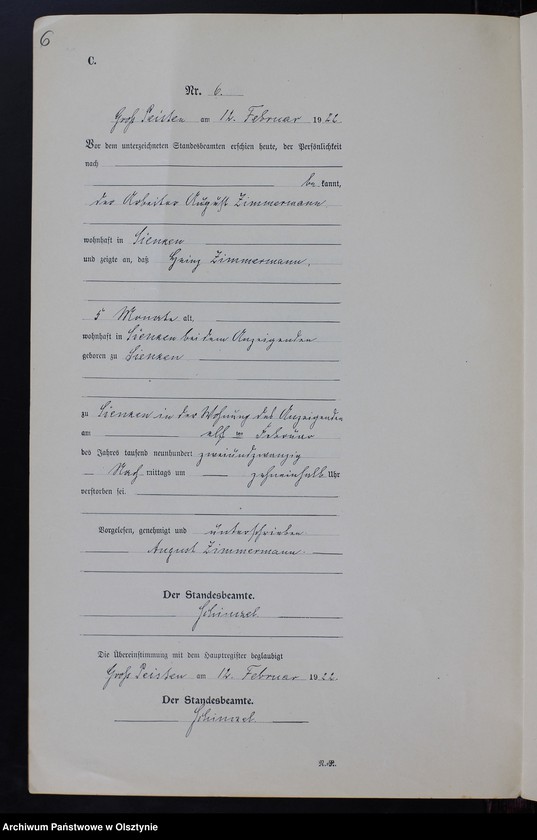 6
C.
Nr. 6.
Groß Peisten am 12. Februar 1922.
Vor dem unterzeichneten Standesbeamten erschien heute, der Persönlichkeit
nach
be kannt,
der Arbeiter August Zimmermann
wohnhaft in Sienken
und zeigte an, daß Heinz Zimmermann,
5 Monate alt,
wohnhaft in Sienken bei dem Anzeigenden
geboren zu Sienken
zu Sienken in der Wohnung des Anzeigenden
am elften Februar
des Jahres tausend neunhundert zweiundzwanzig
Nach mittags um zehneinhalb Uhr
verstorben sei.
Vorgelesen, genehmigt und unterschrieben
August Zimmermann
Der Standesbeamte.
Schinzel
Die Übereinstimmung mit dem Hauptregister beglaubigt
Groß Peisten am 12. Februar 1922.
Der Standesbeamte.
Schinzel
Archiwum Państwowe w Olsztynie